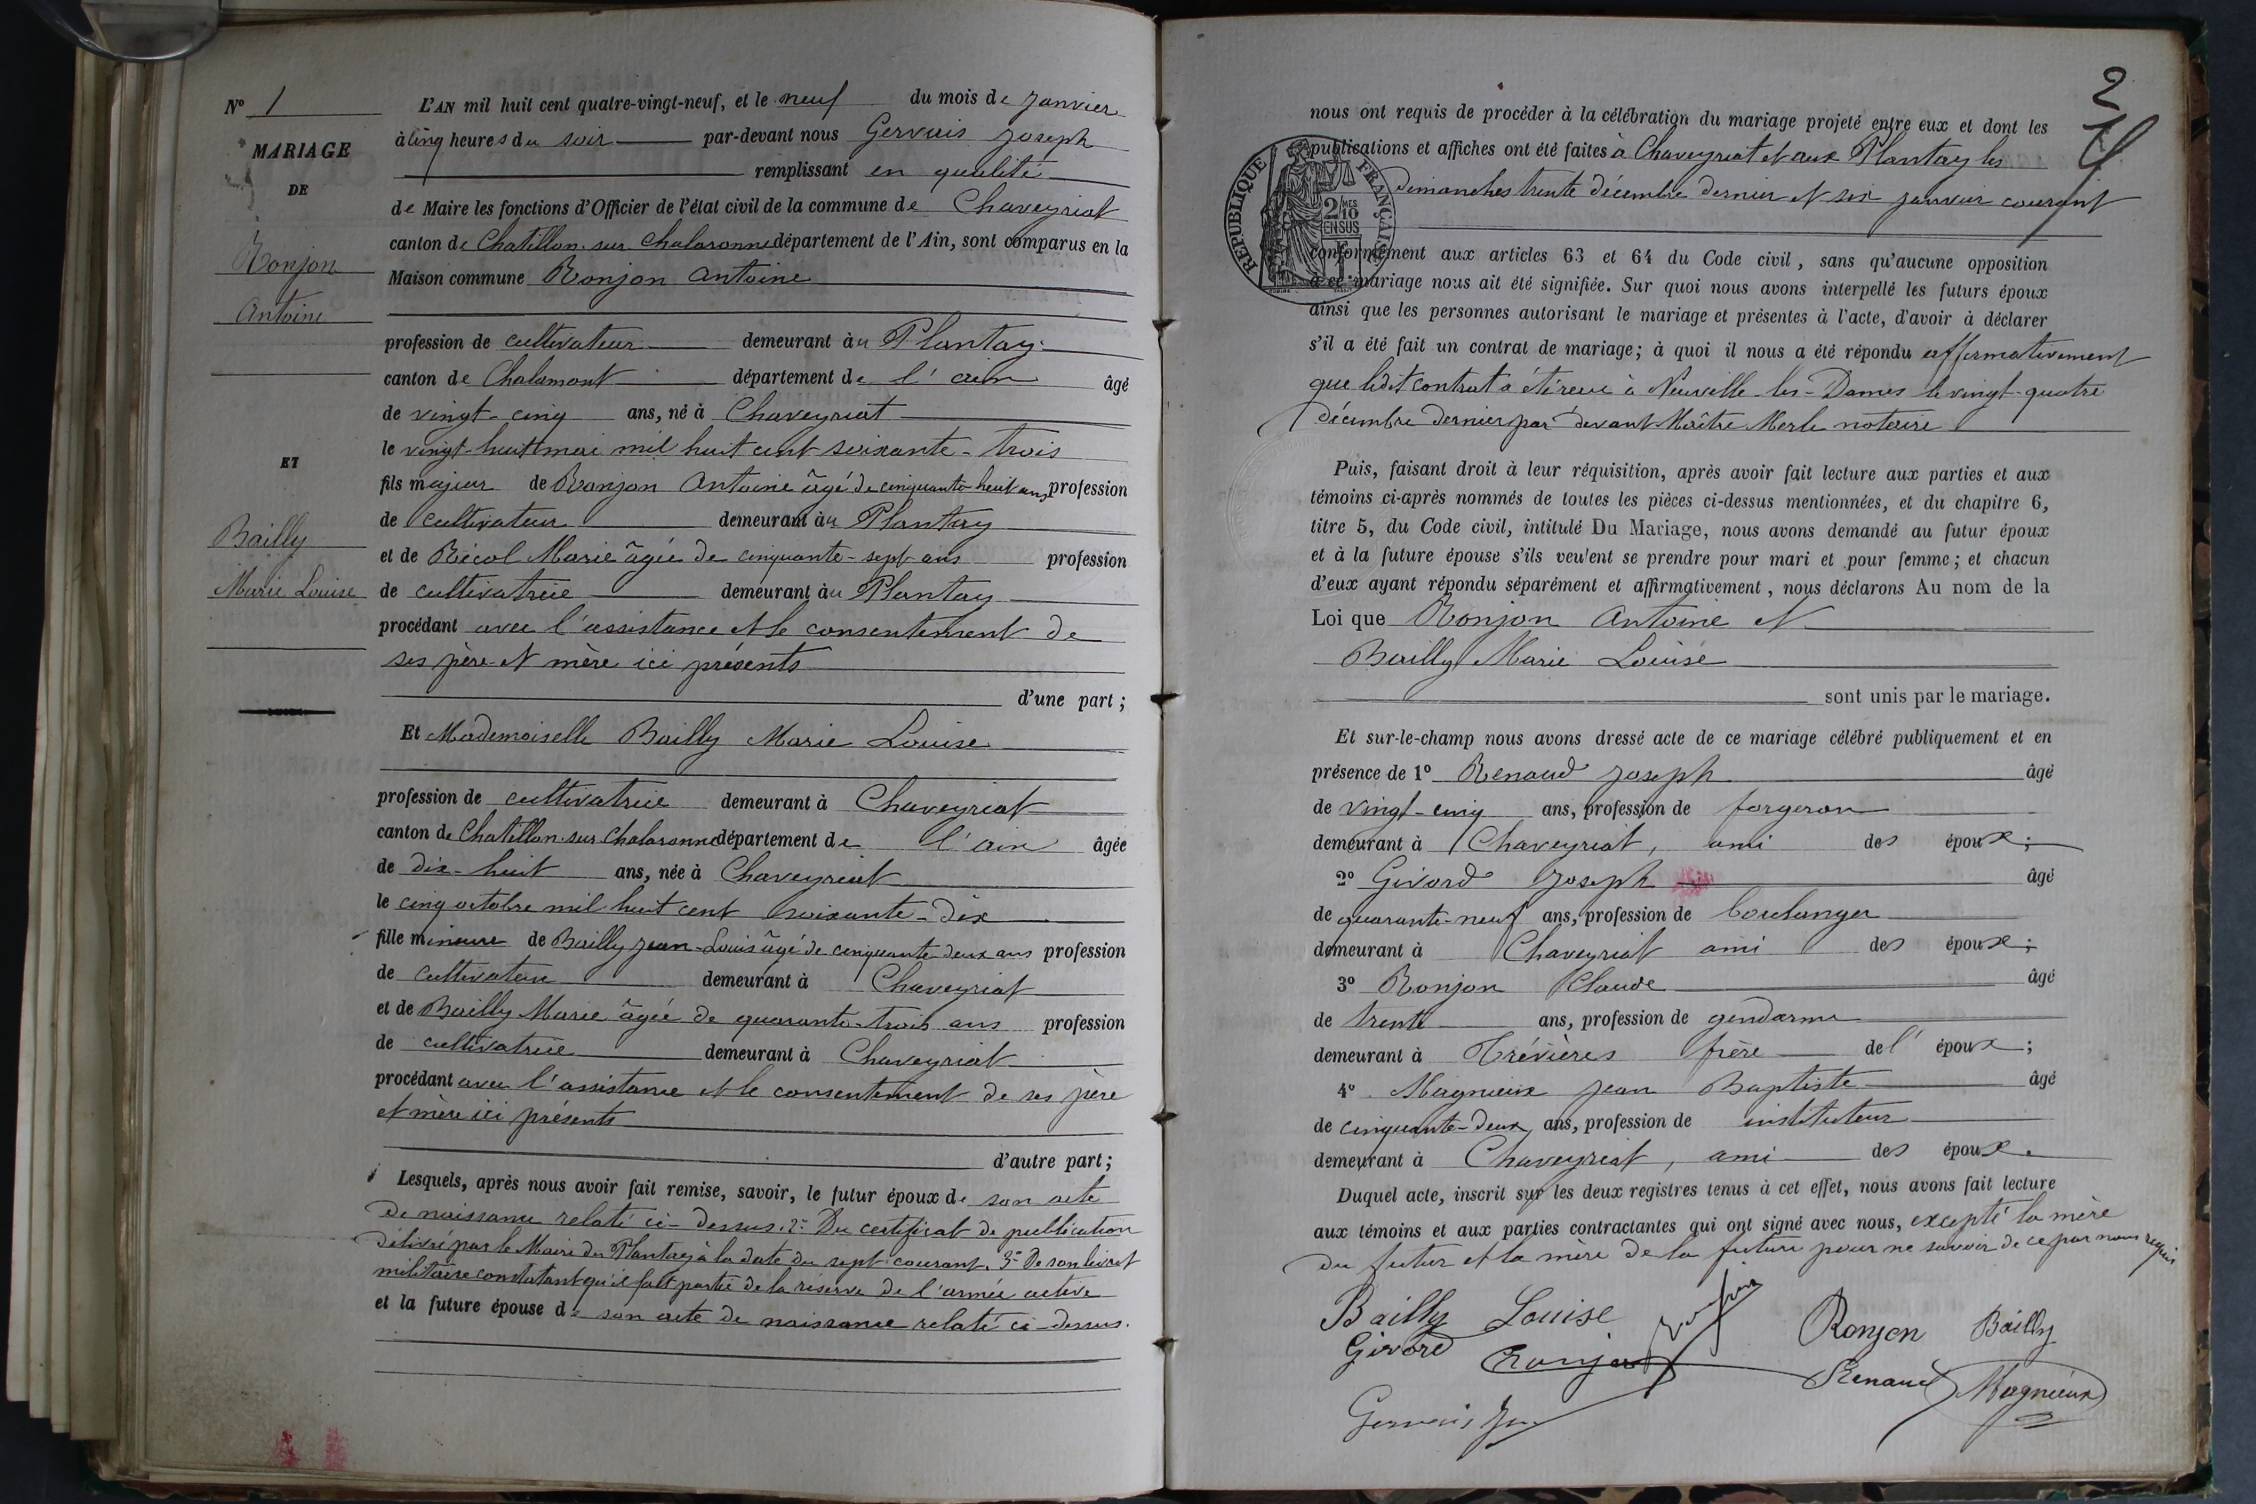 N° 1
MARIAGE
DE
Ronjon
Antoine
ET
Bailly
Marie Louise
L'AN mil huit cent quatre-vingt-neuf, et le neuf du mois de Janvier
à cinq heures du soir par-devant nous Gervais Joseph
remplissant en qualité
de Maire les fonctions d'Officier de l'état civil de la commune de Chaveyriat
canton de Chatillon-sur-Chalaronne département de l'Ain, sont comparus en la
Maison commune Ronjon Antoine
profession de cultivateur demeurant au Plantay
canton de Chalamont département de l'ain âgé
de vingt-cinq ans, né à Chaveyriat
le vingt-huit mai mil huit cent soixante-trois
fils majeur de Ronjon Antoine âgé de cinquante huit ans profession
de cultivateur demeurant au Plantay
et de Récol Marie âgée de cinquante-sept ans profession
de cultivatrice demeurant au Plantay
procédant avec l'assistance et le consentement de
ses père et mère ici présents
d'une part ;
Et Mademoiselle Bailly Marie Louise
profession de cultivatrice demeurant à Chaveyriat
canton de Chatillon-sur-Chalaronne département de l'ain âgée
de dix-huit ans, née à Chaveyriat
le cinq octobre mil huit cent soixante-dix
fille mineure de Bailly Jean-Louis âgé de cinquante deux ans profession
de cultivateur demeurant à Chaveyriat
et de Bailly Marie âgée de quarante-trois ans profession
de cultivatrice demeurant à Chaveyriat
procédant avec l'assistance et le consentement de ses père
et mère ici présents
d'autre part ;
Lesquels, après nous avoir fait remise, savoir, le futur époux de son acte
de naissance relaté ci-dessus. 2° Du certificat de publication
délivré par le Maire du Plantay à la date du sept courant. 3° De son livret
militaire constatant qu'il fait partie de la réserve de l'armée active
et la future épouse de son acte de naissance relaté ci-dessus.
2
nous ont requis de procéder à la célébration du mariage projeté entre eux et dont les
publications et affiches ont été faites à Chaveyriat et aux Plantay les
dimanches trente décembre dernier et six janvier courant
RÉPUBLIQUE FRANÇAISE
2/10 MES
EN SUS
conformément aux articles 63 et 64 du Code civil, sans qu'aucune opposition
à ce mariage nous ait été signifiée. Sur quoi nous avons interpellé les futurs époux
ainsi que les personnes autorisant le mariage et présentes à l'acte, d'avoir à déclarer
s'il a été fait un contrat de mariage; à quoi il nous a été répondu affirmativement
que ledit contrat a été reçu à Neuville-les-Dames le vingt-quatre
décembre dernier par devant Maître Merle notaire
Puis, faisant droit à leur réquisition, après avoir fait lecture aux parties et aux
témoins ci-après nommés de toutes les pièces ci-dessus mentionnées, et du chapitre 6,
titre 5, du Code civil, intitulé Du Mariage, nous avons demandé au futur époux
et à la future épouse s'ils veulent se prendre pour mari et pour femme; et chacun
d'eux ayant répondu séparément et affirmativement, nous déclarons Au nom de la
Loi que Ronjon Antoine et
Bailly Marie Louise
sont unis par le mariage.
Et sur-le-champ nous avons dressé acte de ce mariage célébré publiquement et en
présence de 1° Renaud Joseph âgé
de vingt-cinq ans, profession de forgeron
demeurant à Chaveyriat, ami des époux ;
2° Givord Joseph âgé
de quarante-neuf ans, profession de boulanger
demeurant à Chaveyriat ami des époux ;
3° Ronjon Claude âgé
de trente ans, profession de gendarme
demeurant à Trévières frère de l'époux ;
4° Magnieux Jean Baptiste âgé
de cinquante-deux ans, profession de instituteur
demeurant à Chaveyriat, ami des époux.
Duquel acte, inscrit sur les deux registres tenus à cet effet, nous avons fait lecture
aux témoins et aux parties contractantes qui ont signé avec nous, excepté la mère
du futur et la mère de la future pour ne savoir de ce par nous requis
Bailly Louise
Ronjon Bailly
Givord Ronjon
Renaud Magnieux
Gervais